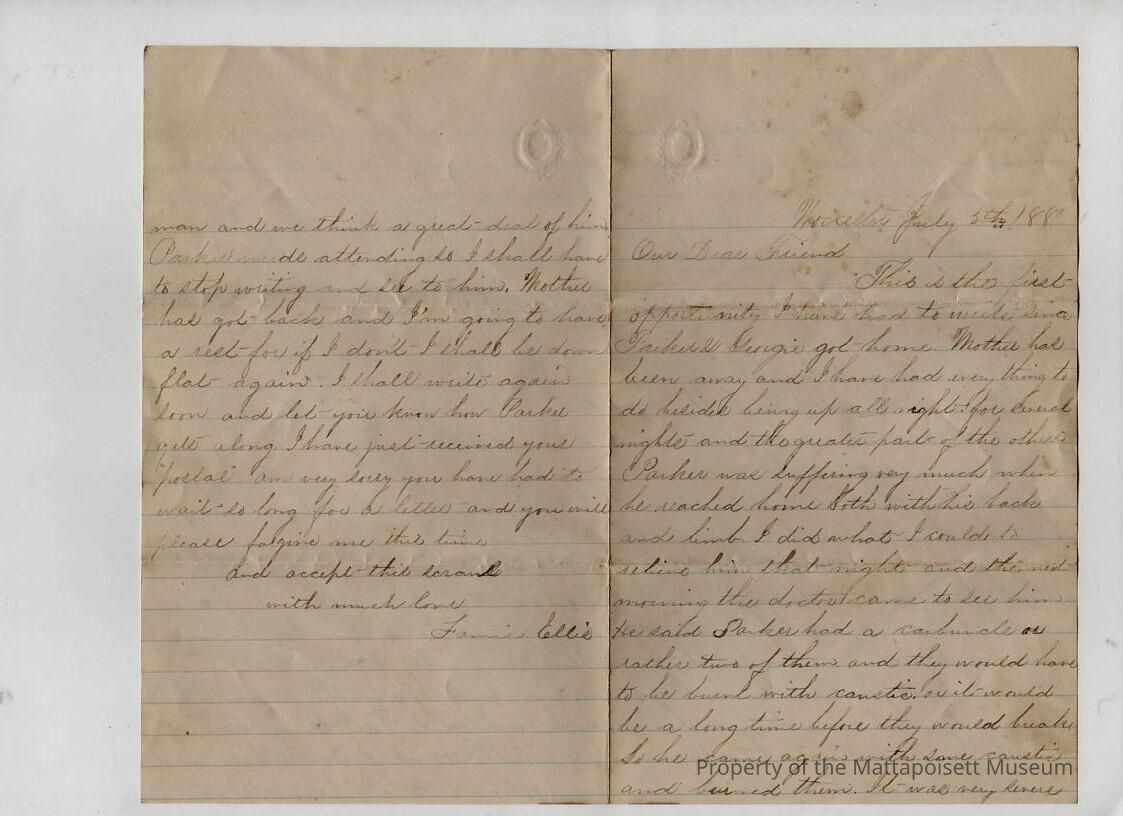 man and we think a great deal of him
Parker needs attending so I shall have
to stop writing and see to him. Mother
has got back and I'm going to have
a rest for if I don't I shall be down
flat again. I shall write again
soon and let you know how Parker
gets along I have just received your
"postal" am very sorry you have had to
wait so long for a letter and you will
please forgive me this time
and accept this scrawl
with much love
Ellis
Worcester July 5th 188
Our Dear Friend
This is the first
opportunity I have had to write since
Parker & Georgie got home. Mother has
been away and I have had everything to
do besides being up all night for several
nights and the greater part of the others
Parker was suffering very much when
he reached home both with his back
and limb. I did what I could to
relieve him that night and the next
morning the doctor came to see him
He said Parker had a carbuncle or
rather two of them and they would have
to be burnt with caustic, or it would
be a long time before they would break
So he came again with some caustic
and burned them. It was very severe
Property of the Mattapoisett Museum